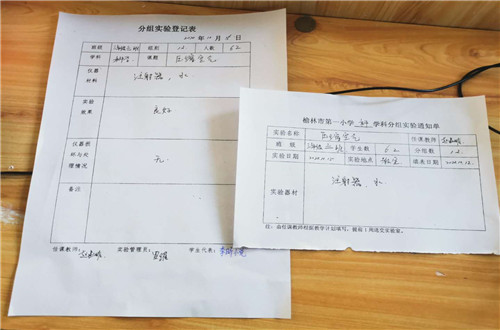 分组实验登记表
年 月 日
班级 组别 12 人数 62
学科 科学 课题 压缩空气
仪器
材料 注射器、水
实验
效果 良好
仪器损
坏与处
理情况 无
备注
任课教师: 实验管理员: 学生代表:
榆林市第一小学 科学 学科分组实验通知单
实验名称 压缩空气 任课教师
班 级 学生数 62 分组数 12
实验日期 实验地点 填表日期
实验器材 注射器、水
注:由任课教师根据教学计划填写,提前1周送交实验室。